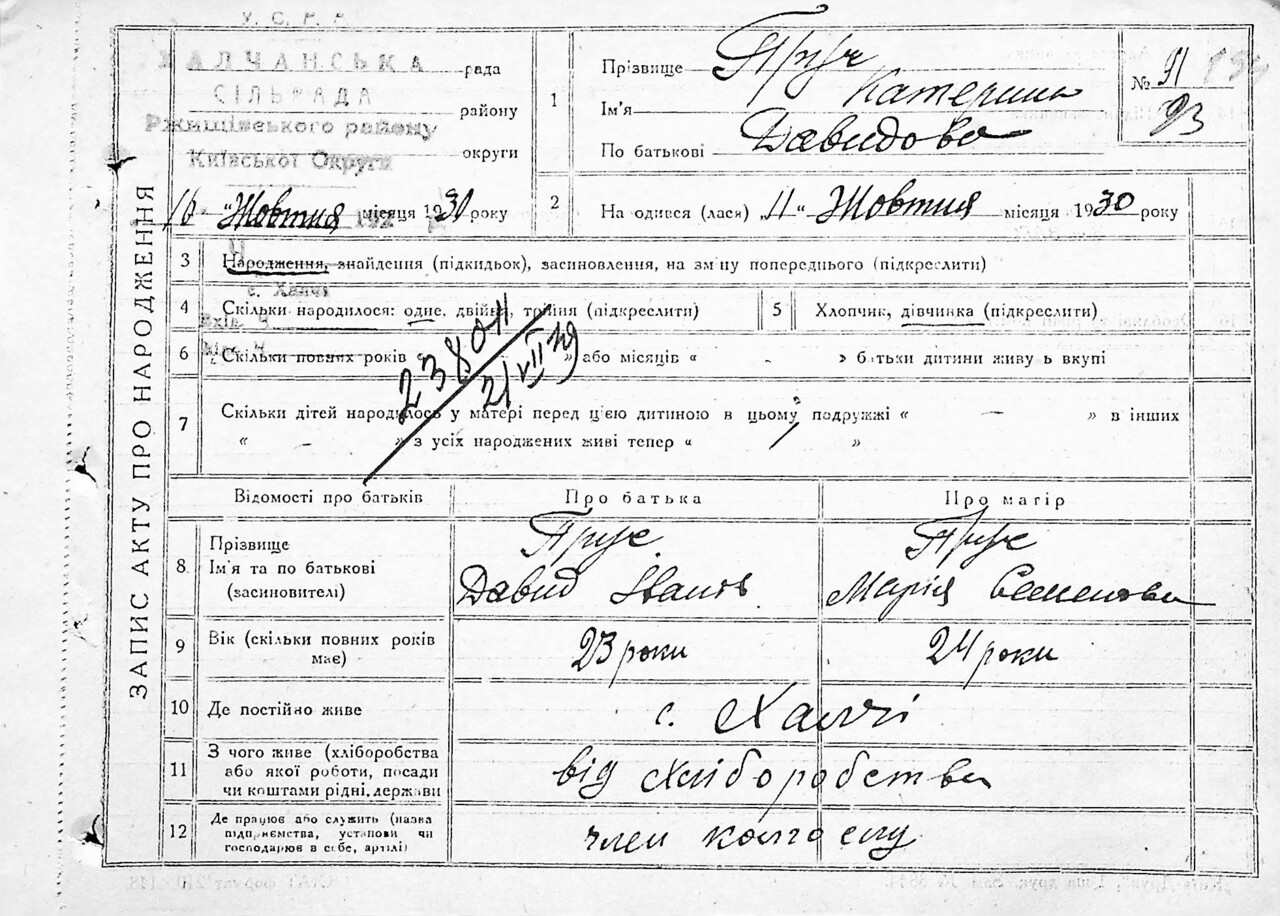 У. С. Р. Р.
ХАЛЧАНСЬКА рада
СІЛЬРАДА району
Ржищівського району
Київської Округи округи
16 „Жовтня місяця 1930 року
с. Халчі
Вхід. Ч.
ЗАПИС АКТУ ПРО НАРОДЖЕННЯ
1
Прізвище Прус
Ім'я Катерина
По батькові Давидова
№ 91
93
2
Народився (лася) „11“ Жовтня місяця 1930 року
3 Народження, знайдення (підкидьок), засиновлення, на зміну попереднього (підкреслити)
4 Скільки народилося: одне, двійня, трійня (підкреслити)
5 Хлопчик, дівчинка (підкреслити)
6 Скільки повних років « » або місяців « - » батьки дитини живуть вкупі
23804
21/VII 49
7 Скільки дітей народилось у матері перед цією дитиною в цьому подружжі « — » в інших
« — » з усіх народжених живі тепер « »
Відомості про батьків Про батька Про матір
8 Прізвище
Ім'я та по батькові
(засиновителі)
Прус
Давид Іванів
Прус
Марія Семенова
9 Вік (скільки повних років
має)
23 роки 24 роки
10 Де постійно живе с. Халчі
11 З чого живе (хліборобства
або якої роботи, посади
чи коштами рідні, держави
від хліборобства
12 Де працює або служить (назва
підприємства, установи чи
господарює в себе, артілі)
член колгоспу